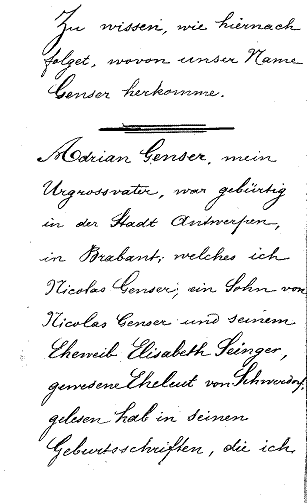 Zu wissen, wie hiernach
folget, wovon unser Name
Genser herkomme.
Adrian Genser, mein
Urgrossvater, war gebürtig
in der Stadt Antwerpen,
in Brabant; welches ich
Nicolas Genser; ein Sohn von
Nicolas Genser und seinem
Eheweib Elisabeth Seinger,
gewesene Eheleut von Schwerdorf,
gelesen hab in seinen
Geburtsschriften, die ich